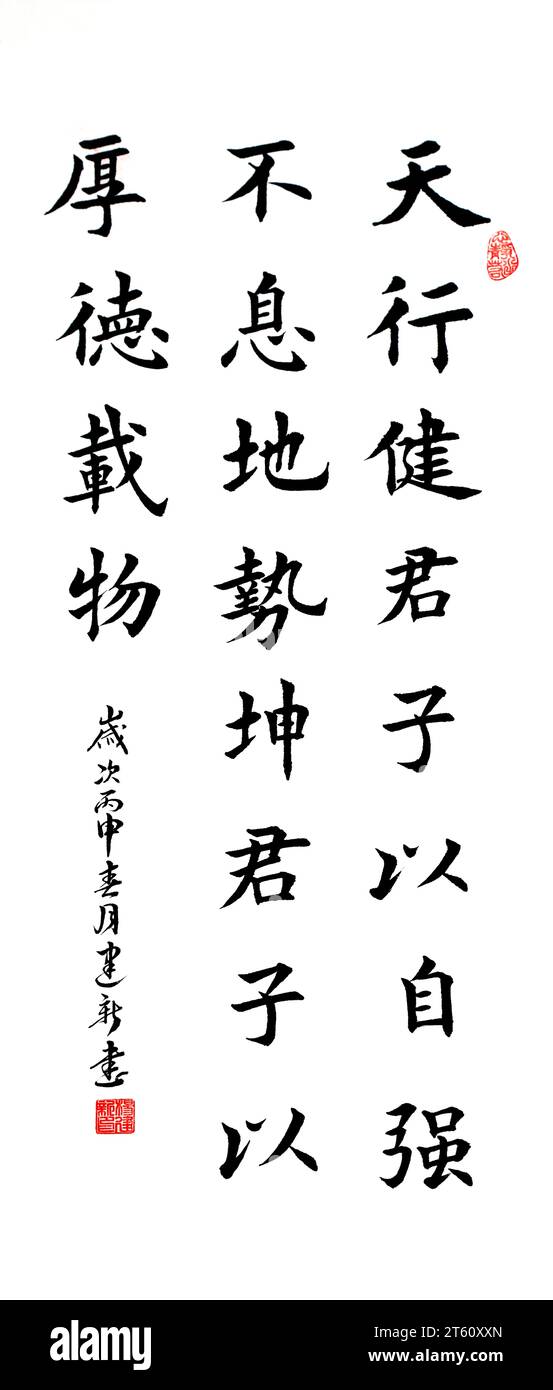 天行健君子以自强
不息地勢坤君子以
厚德載物
歲次丙申春月建新書
alamy
Image ID: 2T60XXN
www.alamy.com